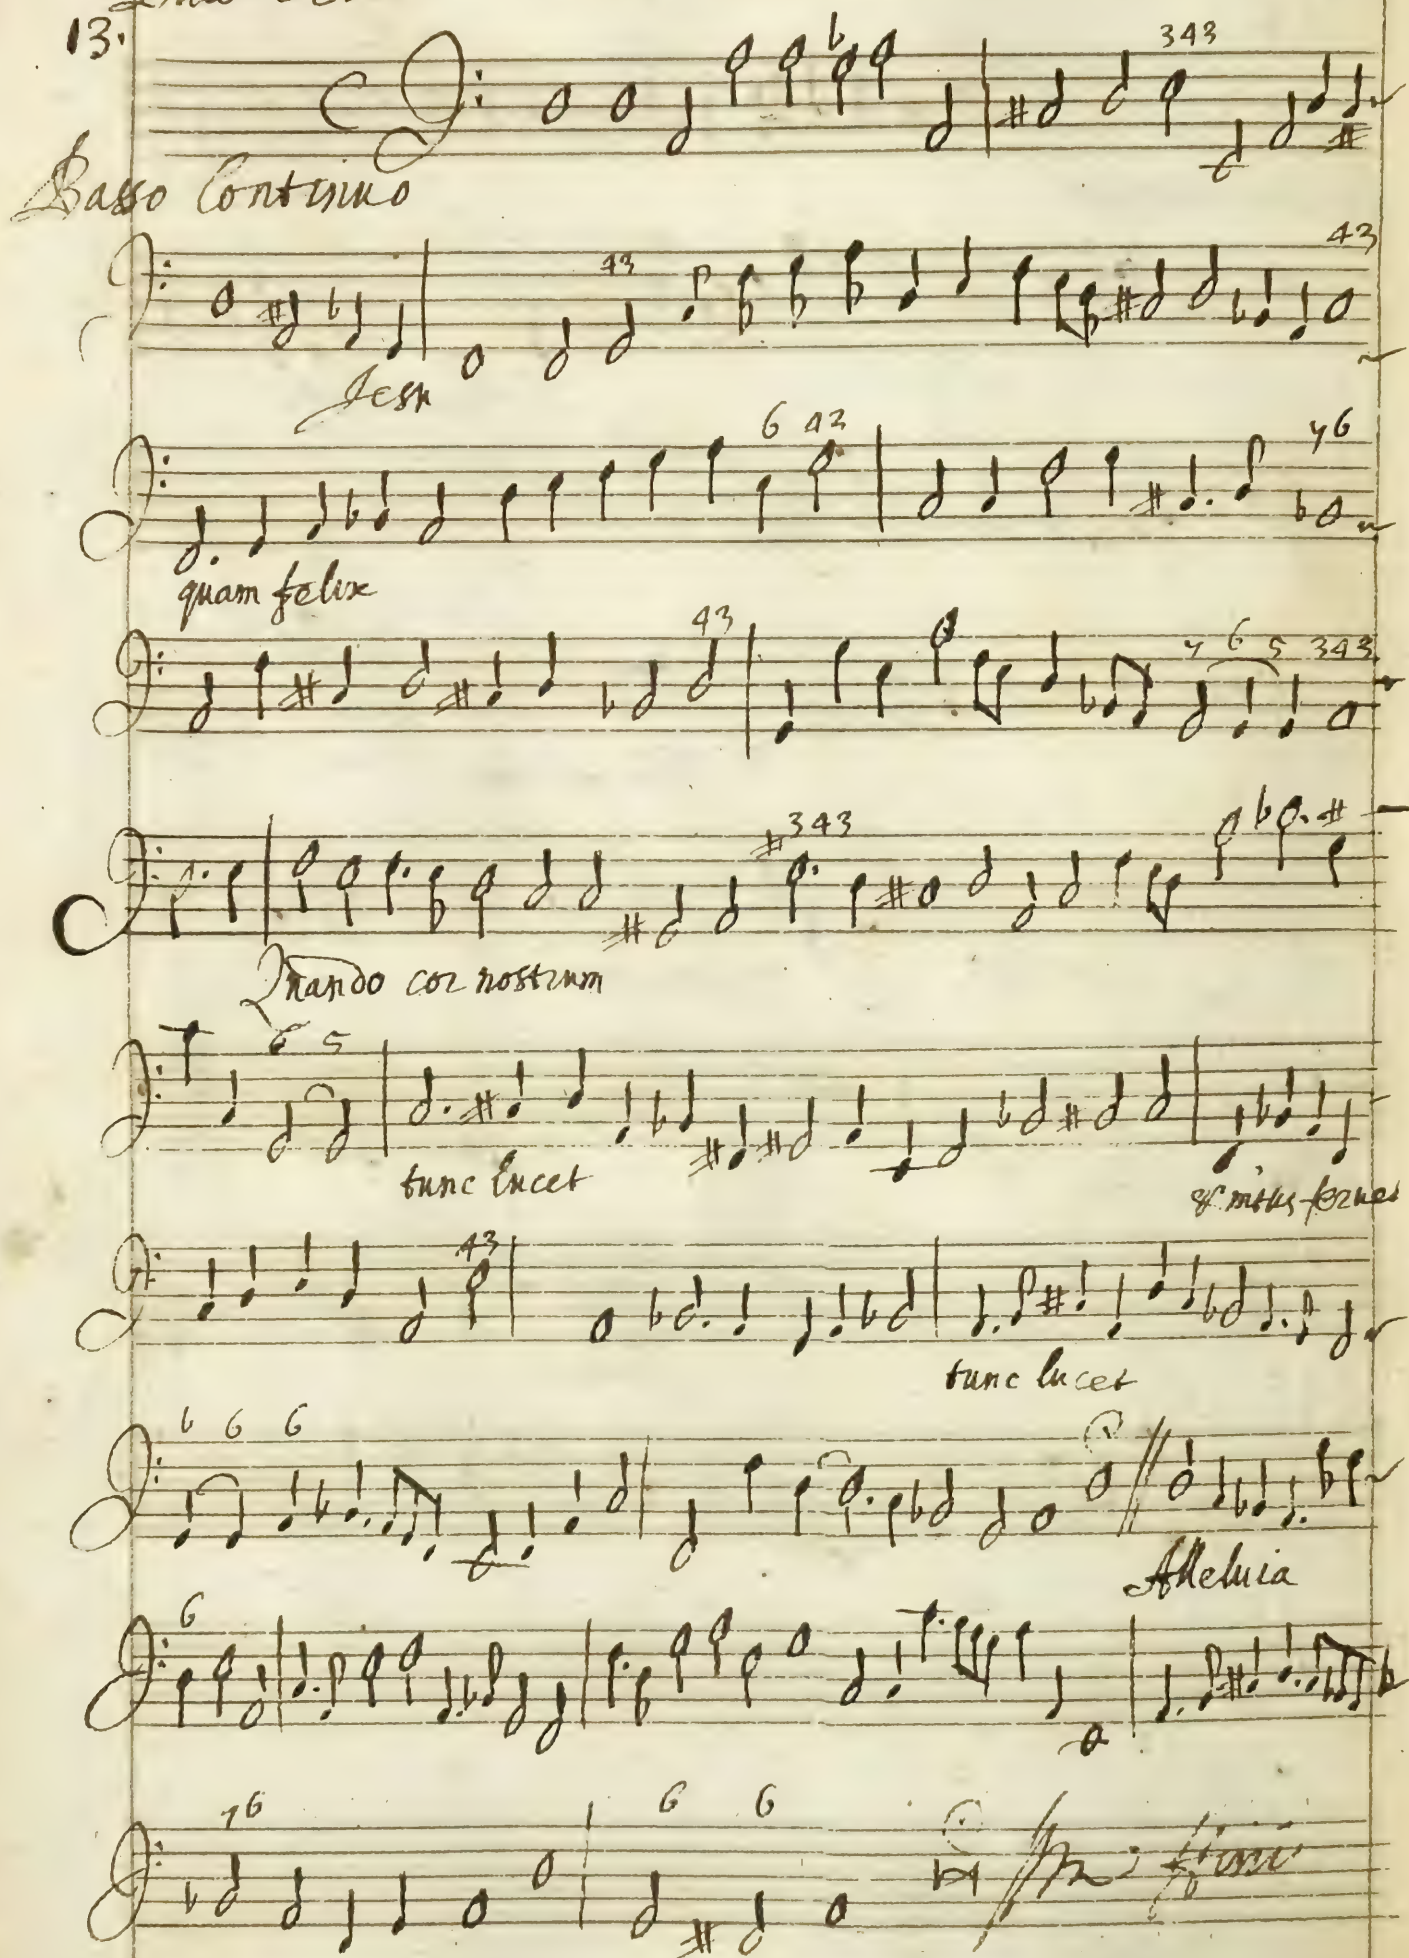 13.
343
Basso Continuo
43 43
Jesu
6 43 76
quam felix
43 7 6 5 343
343
Quando cor nostrum
6 5
tunc lucet & intus feruet
43
tunc lucet
6 6 6
Alleluia
6
76 6 6
finis